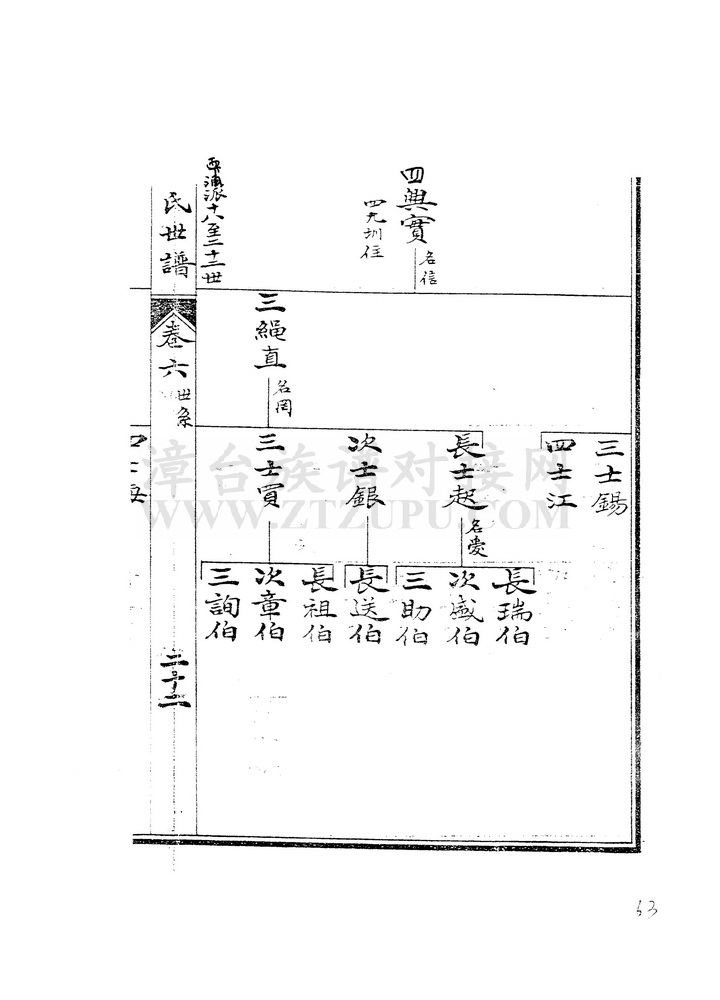 四興實
名信
四九圳住
三繩直
名罔
三士錫
四士江
長士起
名慶
次士銀
三士買
長瑞伯
次盛伯
三助伯
長送伯
長祖伯
次章伯
三詢伯
派十八至二十二世
氏世譜
卷六
世系
二十二
漳台族谱对接网
WWW.ZTZUPU.COM
63